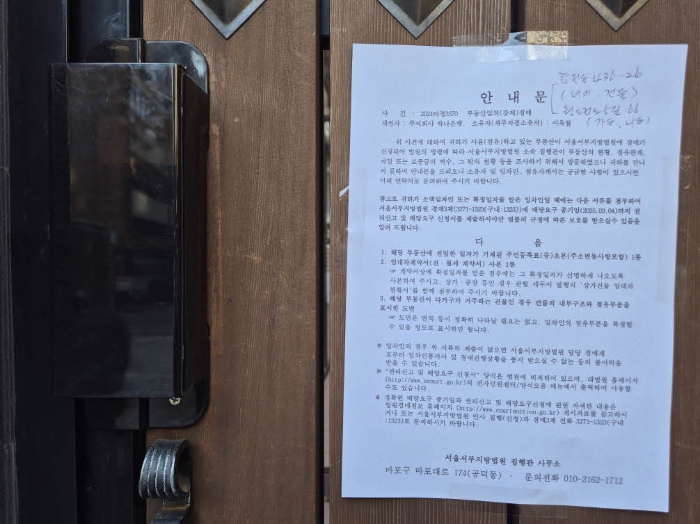 안 내 문
사 건 : 2024타경3570 부동산임의(강제)경매
채권자 : 주식회사 하나은행, 소유자(채무자겸소유자) :
위 사건에 대하여 귀하가 사용(점유)하고 있는 부동산이 서울서부지방법원에 경매가
신청되어 법원의 명령에 따라 서울서부지방법원 소속 집행관이 부동산의 현황, 점유관계,
차임 또는 보증금의 액수, 그 밖의 현황 등을 조사하기 위해서 방문하였으나 귀하를 만나
지 못하여 안내문을 드리오니 소유자 및 임차인, 점유자께서는 궁금한 사항이 있으시면
아래 연락처로 문의하여 주시기 바랍니다.
참고로 귀하가 소액임차인 또는 확정일자를 받은 임차인일 때에는 다음 서류를 첨부하여
서울서부지방법원 경매3계(3271-1323(구내:1323))에 배당요구 종기일(2025.03.04)까지 권
리신고 및 배당요구 신청서를 제출하셔야만 법률의 규정에 따른 보호를 받으실수 있음을
알려 드립니다.
다 음
1. 해당 부동산에 전입한 일자가 기재된 주민등록표(등)초본(주소변동사항포함) 1통
2. 임대차계약서(전·월세 계약서) 사본 1통
☞ 계약서상에 확정일자를 받은 경우에는 그 확정일자가 선명하게 나오도록
사본하여 주시고, 상가·공장 등인 경우 관할 세무서 발행의 "상가건물 임대차
현황서"를 함께 첨부하여 주시기 바랍니다.
3. 해당 부동산이 다가구가 거주하는 건물인 경우 건물의 내부구조와 점유부분을
표시한 도면
☞ 도면은 면적 등이 정확히 나타날 필요는 없고, 임차인의 점유부분을 특정할
수 있을 정도로 표시하면 됩니다.
※ 임차인의 경우 위 서류의 제출이 없으면 서울서부지방법원 담당 경매계
로부터 임차인통지서 및 경매진행상황을 통지 받으실 수 없는 등의 불이익을
받을 수 있습니다.
※ "권리신고 및 배당요구 신청서" 양식은 법원에 비치되어 있으며, 대법원 홈페이지
(http://www.scourt.go.kr)의 전자민원센터/양식모음 메뉴에서 출력하여 사용할
수도 있습니다.
※ 정확한 배당요구 종기일과 권리신고 및 배당요구신청에 관한 자세한 내용은
법원경매정보 홈페이지 (http://www.courtauction.go.kr) 게시자료를 참고하시
거나 또는 서울서부지방법원 민사 집행(신청)과 경매3계 전화 3271-1323(구내
:1323)로 문의하시기 바랍니다.
서울서부지방법원 집행관 사무소
마포구 마포대로 174(공덕동) · 문의전화 010-2162-1712